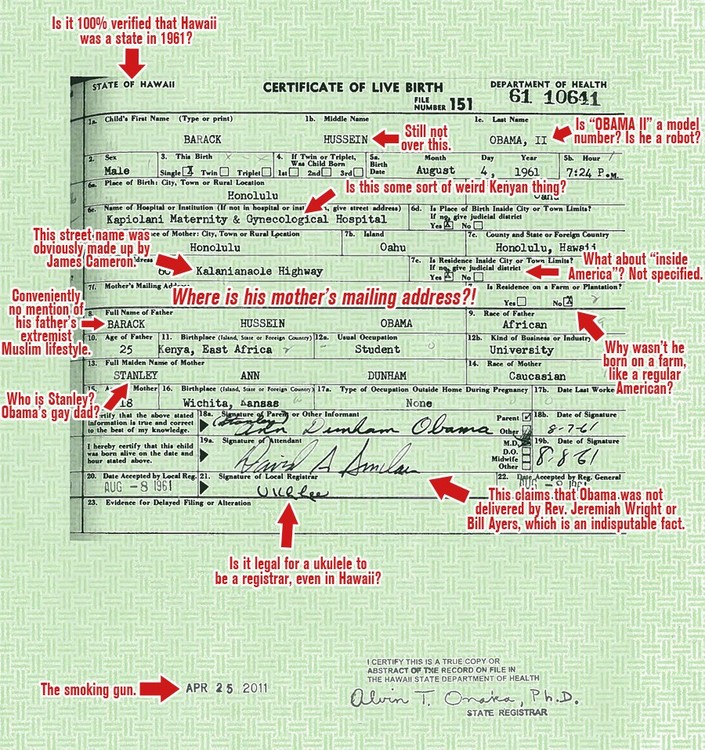 Is it 100% verified that Hawaii
was a state in 1961?
STATE OF HAWAII
CERTIFICATE OF LIVE BIRTH
DEPARTMENT OF HEALTH
FILE NUMBER 151
61 10641
1a. Child's First Name (Type or print)
1b. Middle Name
1c. Last Name
BARACK
HUSSEIN
OBAMA, II
Still not
over this.
Is “OBAMA II” a model
number? Is he a robot?
2. Sex
Male
3. This Birth
Single X Twin Triplet
4. If Twin or Triplet,
Was Child Born
1st 2nd 3rd
5a. Birth Date
Month Day Year
August 4, 1961
5b. Hour
7:24 P.M.
6a. Place of Birth: City, Town or Rural Location
Honolulu
Oahu
Is this some sort of weird Kenyan thing?
6c. Name of Hospital or Institution (If not in hospital or institution, give street address)
Kapiolani Maternity & Gynecological Hospital
6d. Is Place of Birth Inside City or Town Limits?
If no, give judicial district
Yes X No
This street name was
obviously made up by
James Cameron.
of Mother: City, Town or Rural Location
Honolulu
7b. Island
Oahu
7c. County and State or Foreign Country
Honolulu, Hawaii
Address
Kalanianaole Highway
7e. Is Residence Inside City or Town Limits?
If no, give judicial district
Yes X No
What about “inside
America”? Not specified.
7f. Mother's Mailing Address
Where is his mother's mailing address?!
Is Residence on a Farm or Plantation?
Yes No X
Conveniently
no mention of
his father's
extremist
Muslim lifestyle.
8. Full Name of Father
BARACK HUSSEIN OBAMA
9. Race of Father
African
Why wasn't he
born on a farm,
like a regular
American?
10. Age of Father
25
11. Birthplace (Island, State or Foreign Country)
Kenya, East Africa
12a. Usual Occupation
Student
12b. Kind of Business or Industry
University
13. Full Maiden Name of Mother
STANLEY ANN DUNHAM
14. Race of Mother
Caucasian
Who is Stanley?
Obama's gay dad?
15. Age of Mother
18
16. Birthplace (Island, State or Foreign Country)
Wichita, Kansas
17a. Type of Occupation Outside Home During Pregnancy
None
17b. Date Last Worked
I certify that the above stated
information is true and correct
to the best of my knowledge.
18a. Signature of Parent or Other Informant
(Stanley) Ann Dunham Obama
Parent
Other
18b. Date of Signature
8-7-61
I hereby certify that this child
was born alive on the date and
hour stated above.
19a. Signature of Attendant
David A Sinclair
M.D.
D.O.
Midwife
Other
19b. Date of Signature
8-8-61
20. Date Accepted by Local Reg.
AUG -8 1961
21. Signature of Local Registrar
UKLee
22. Date Accepted by Reg. General
AUG -8 1961
23. Evidence for Delayed Filing or Alteration
This claims that Obama was not
delivered by Rev. Jeremiah Wright or
Bill Ayers, which is an indisputable fact.
Is it legal for a ukulele to
be a registrar, even in Hawaii?
The smoking gun.
APR 25 2011
I CERTIFY THIS IS A TRUE COPY OR
ABSTRACT OF THE RECORD ON FILE IN
THE HAWAII STATE DEPARTMENT OF HEALTH
Alvin T. Onaka, Ph.D.
STATE REGISTRAR